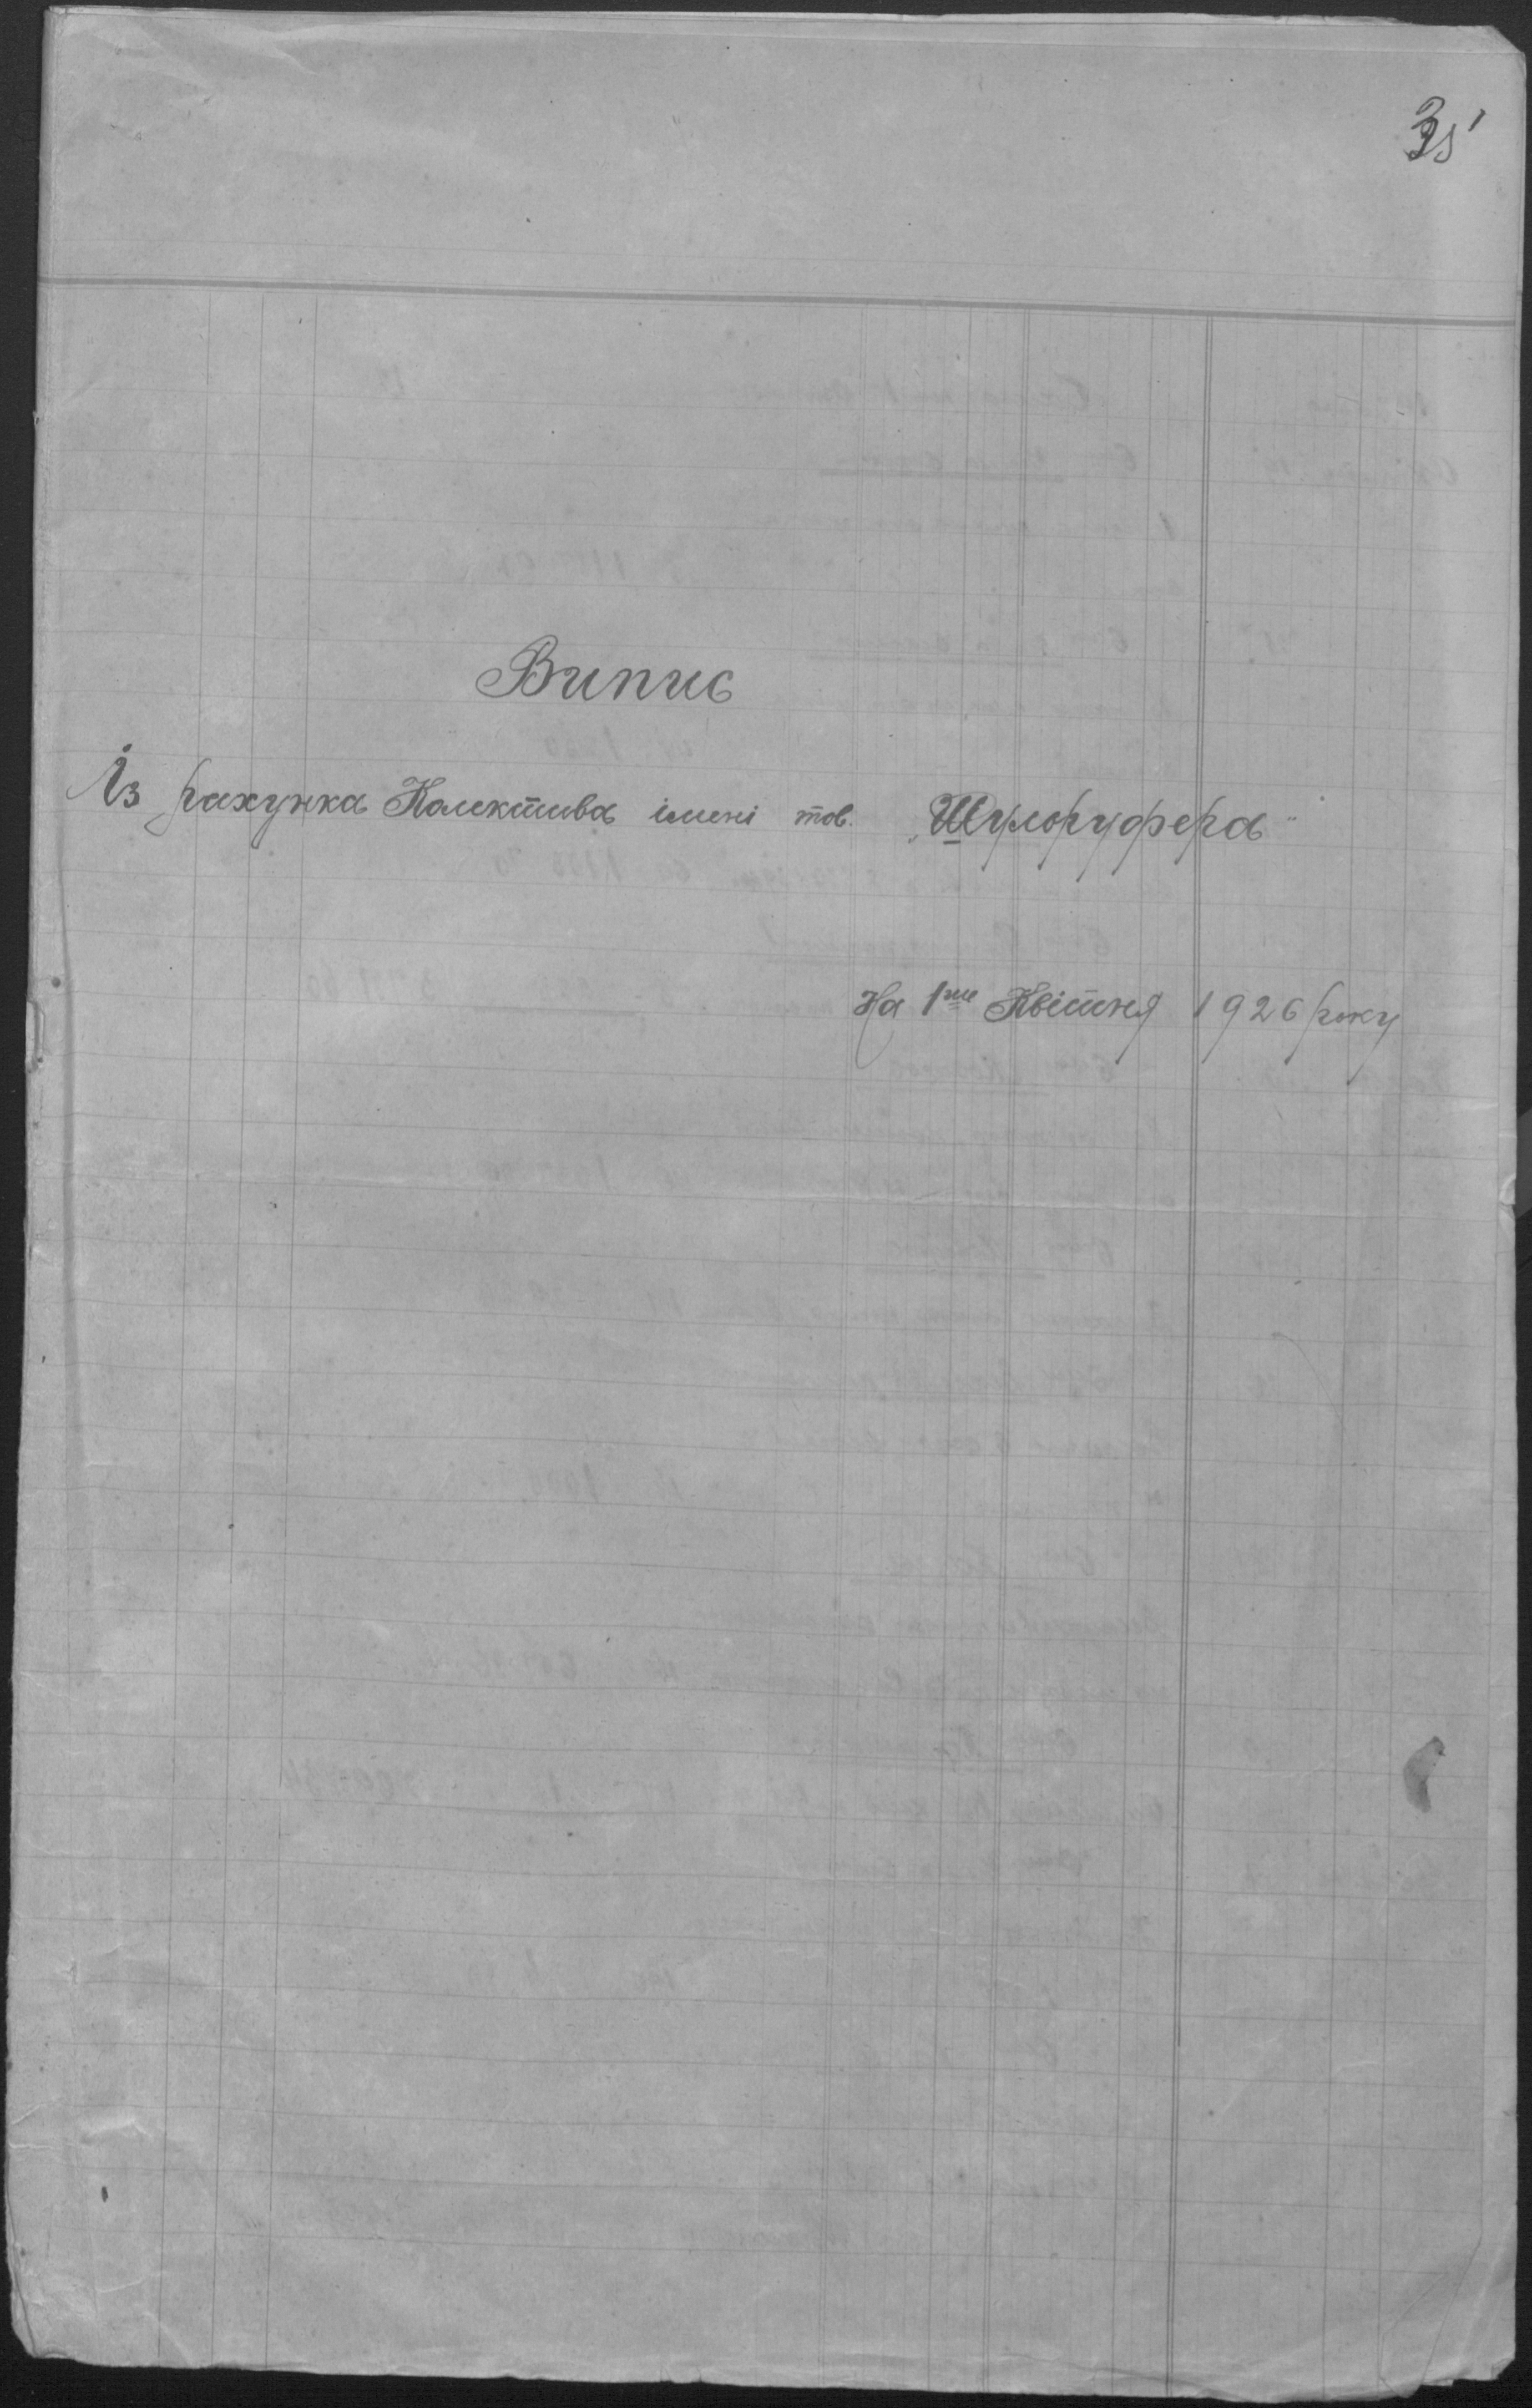 35
Випис
Із рахунка Колектива імені тов. „Шулоруфера"
На 1ше Квітня 1926 року